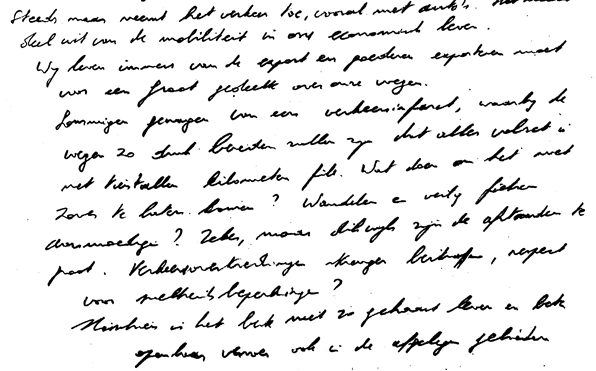 Steeds maar neemt het verkeer toe, vooral met auto's. Het maakt
deel uit van de mobiliteit in ons economisch leven.
Wij leven immers van de export en goederen exporteren moet
voor een groot gedeelte over onze wegen.
Sommigen gewagen van een verkeersinfarct, waarbij de
wegen zo druk bereden zullen zijn dat alles vastzit in
met kilometers file. Wat doen om het niet
zover te laten komen? Wandelen en veilig fietsen
aanmoedigen? Zeker, maar dikwijls zijn de afstanden te
groot. Verkeersovertredingen strenger bestraffen, respect
voor snelheidsbeperkingen?
Misschien is het best niet zo gehaast leven en het
openbaar vervoer ook in de afgelegen gebieden